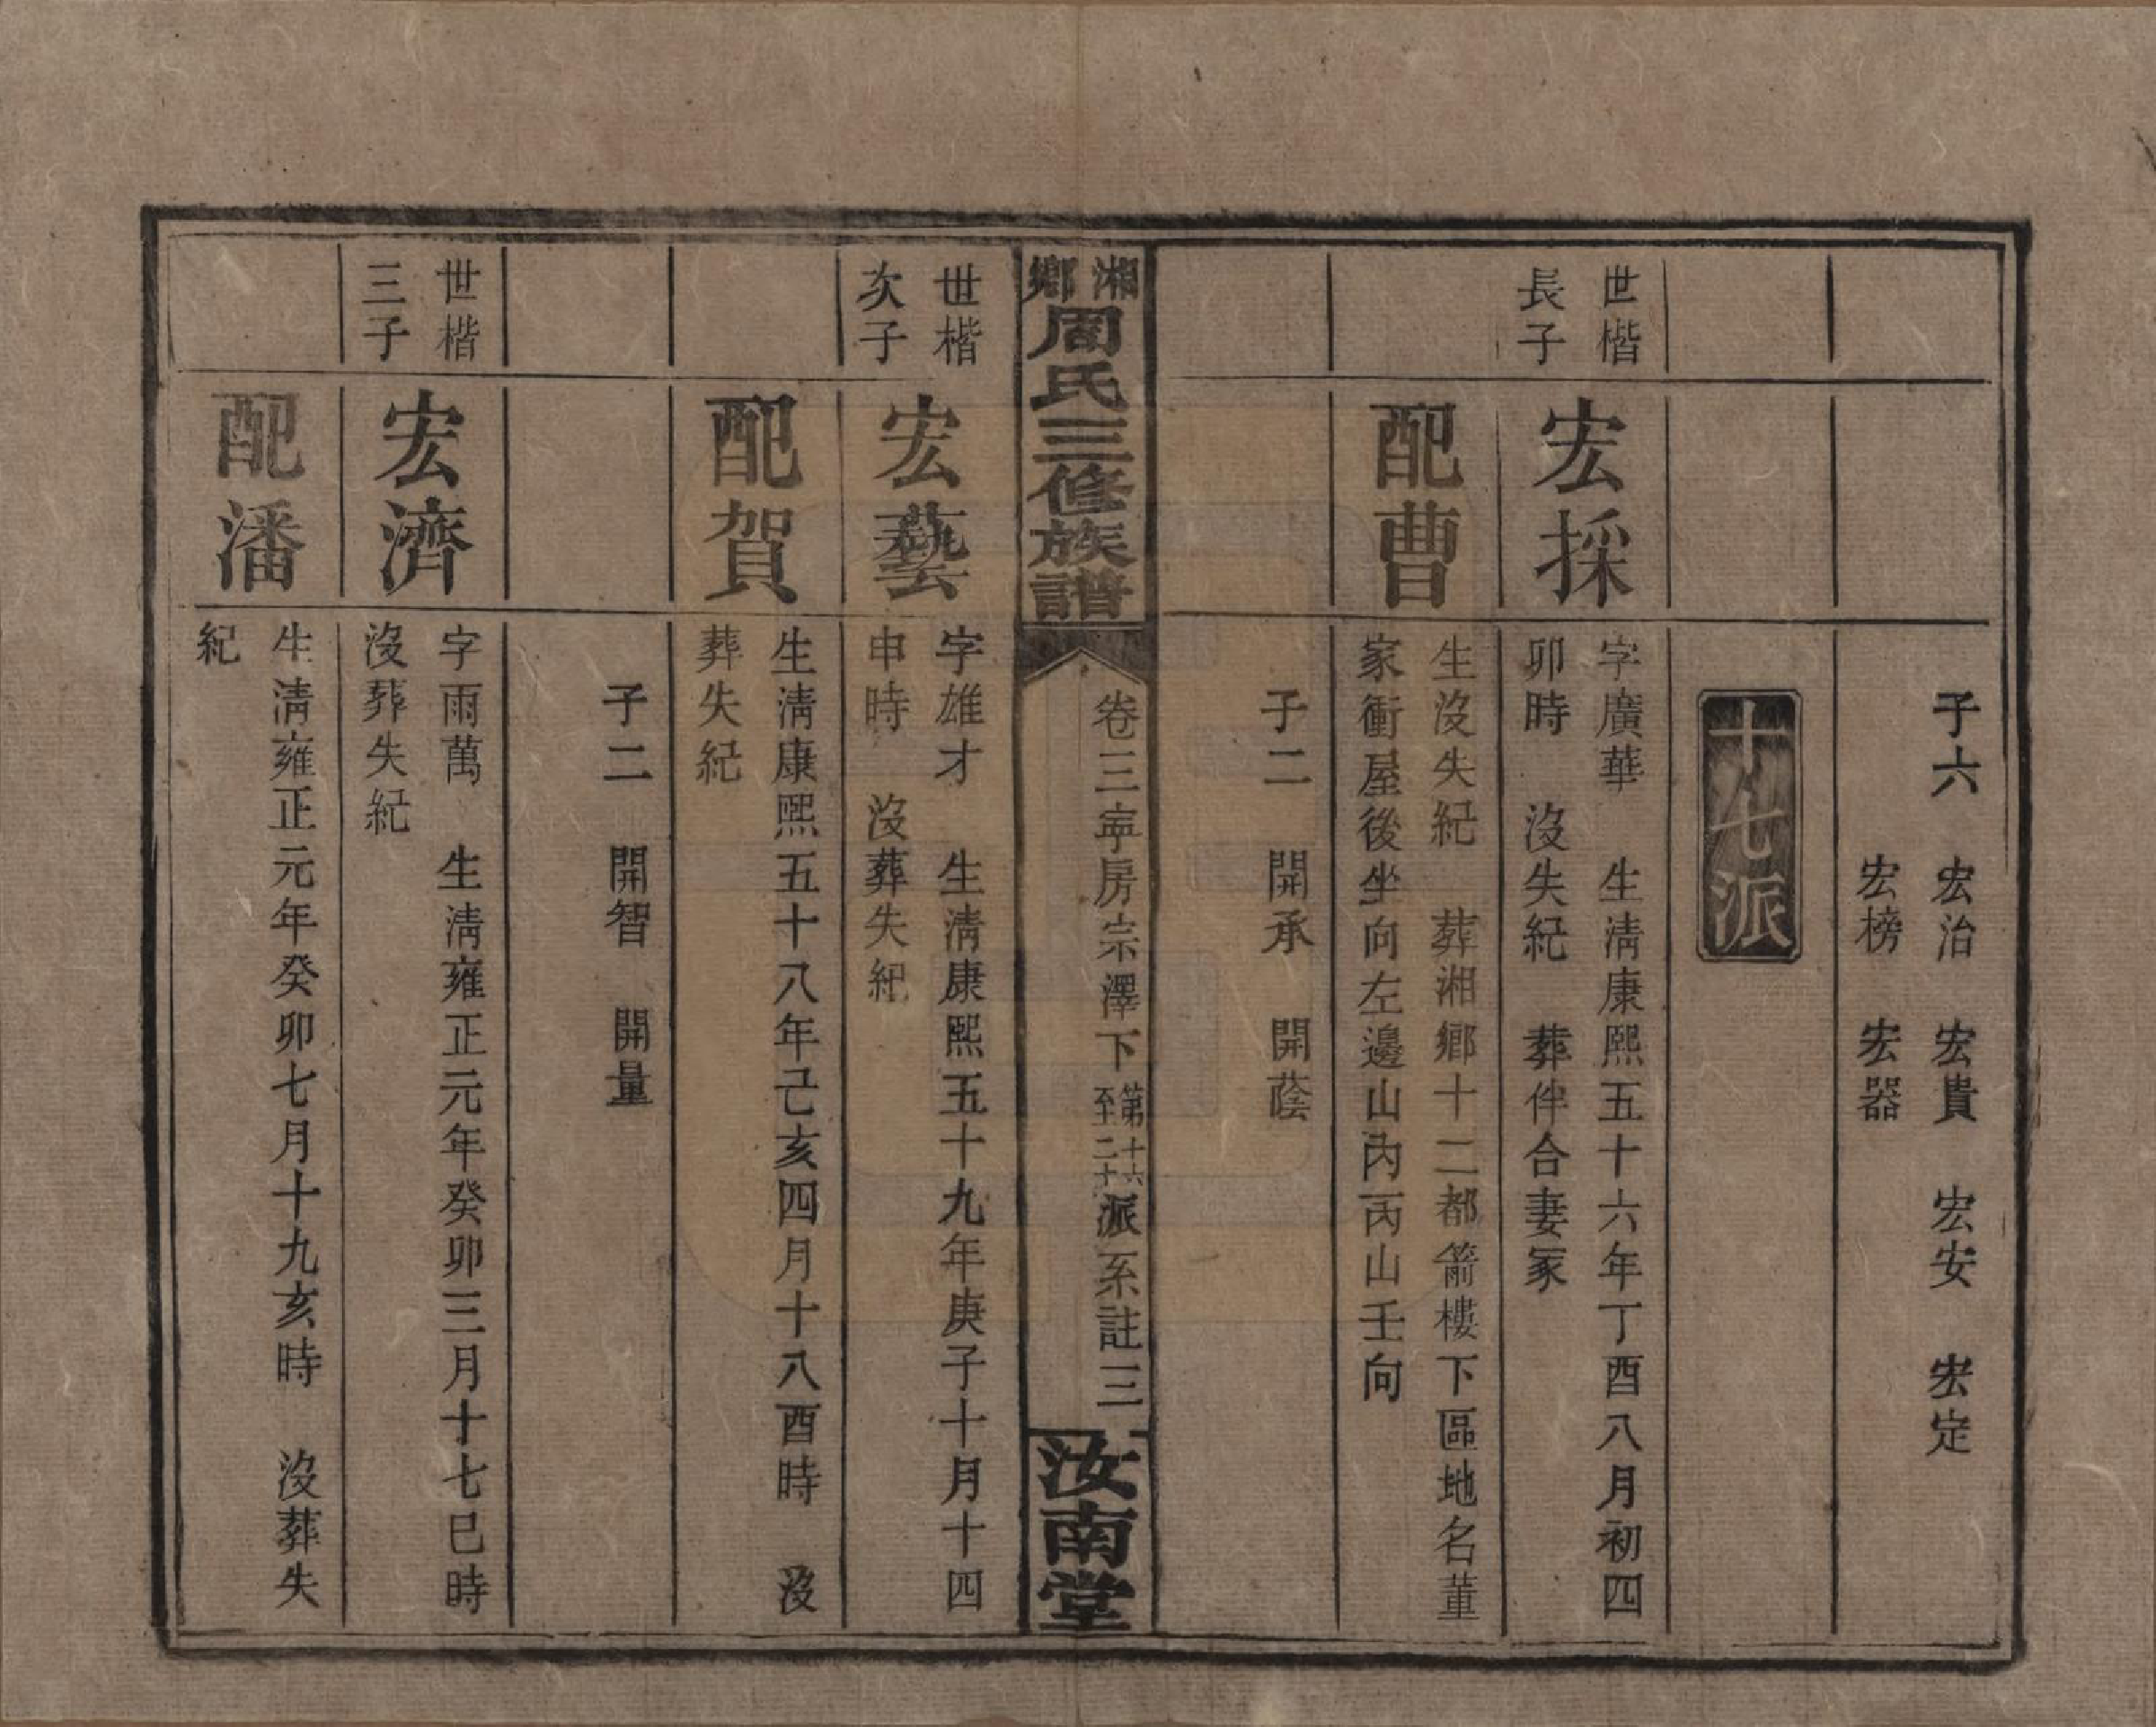 子六 宏治 宏貴 宏安 宏定
宏榜 宏器
十七派
世楷
長子
宏採
字廣華 生清康熙五十六年丁酉八月初四
卯時 沒失紀 葬伴合妻冢
配曹
生沒失紀 葬湘鄉十二都箭樓下區地名董
家衝屋後坐向左邊山內丙山壬向
子二 開承 開蔭
湘鄉
周氏三修族譜
卷三寧房宗澤下
第十六
至二十
派系註
三
汝南堂
世楷
次子
宏藝
字雄才 生清康熙五十九年庚子十月十四
申時 沒葬失紀
配賀
生清康熙五十八年己亥四月十八酉時 沒
葬失紀
子二 開智 開量
世楷
三子
宏濟
字雨萬 生清雍正元年癸卯三月十七巳時
沒葬失紀
配潘
生清雍正元年癸卯七月十九亥時 沒葬失
紀